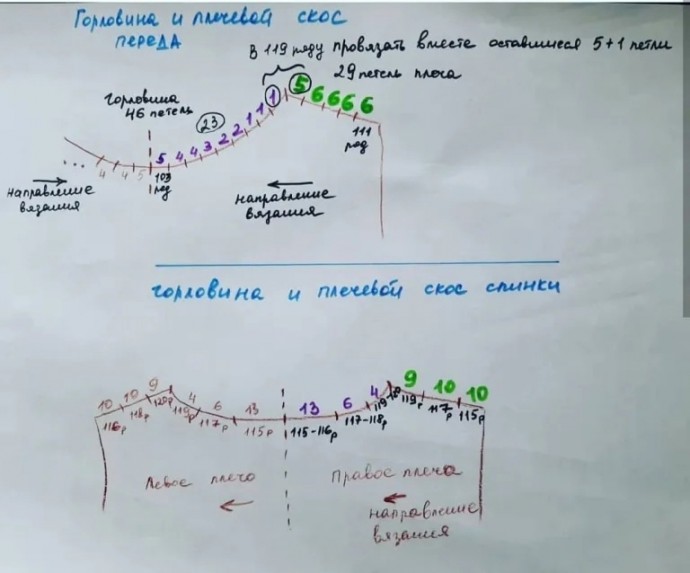 Горловина и плечевой скос
переда
В 119 ряду провязать вместе оставшиеся 5+1 петли
29 петель плеча
горловина
46 петель
23
5 4 4 3 2 2 1 1 1
5 6 6 6 6
111
ряд
... 4 4 5
103
ряд
направление
вязания
направление
вязания
горловина и плечевой скос спинки
10 10 9 4 6 13
116р 118р 120р 119р 117р 115р
13 6 4
115-116р 117-118р
9 10 10
119р 117р 115р
Левое плечо
Правое плечо
направление
вязания